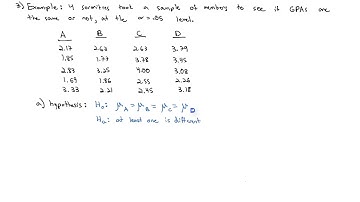 3) Example: 4 sororities took a sample of members to see if GPAs are
the same or not, at the α=.05 level.
A B C D
2.17 2.63 2.63 3.79
1.85 1.77 3.78 3.45
2.83 3.25 4.00 3.08
1.69 1.86 2.55 2.26
3.33 2.21 2.45 3.18
a) hypothesis: H₀: μA = μB = μC = μD
Ha: at least one is different